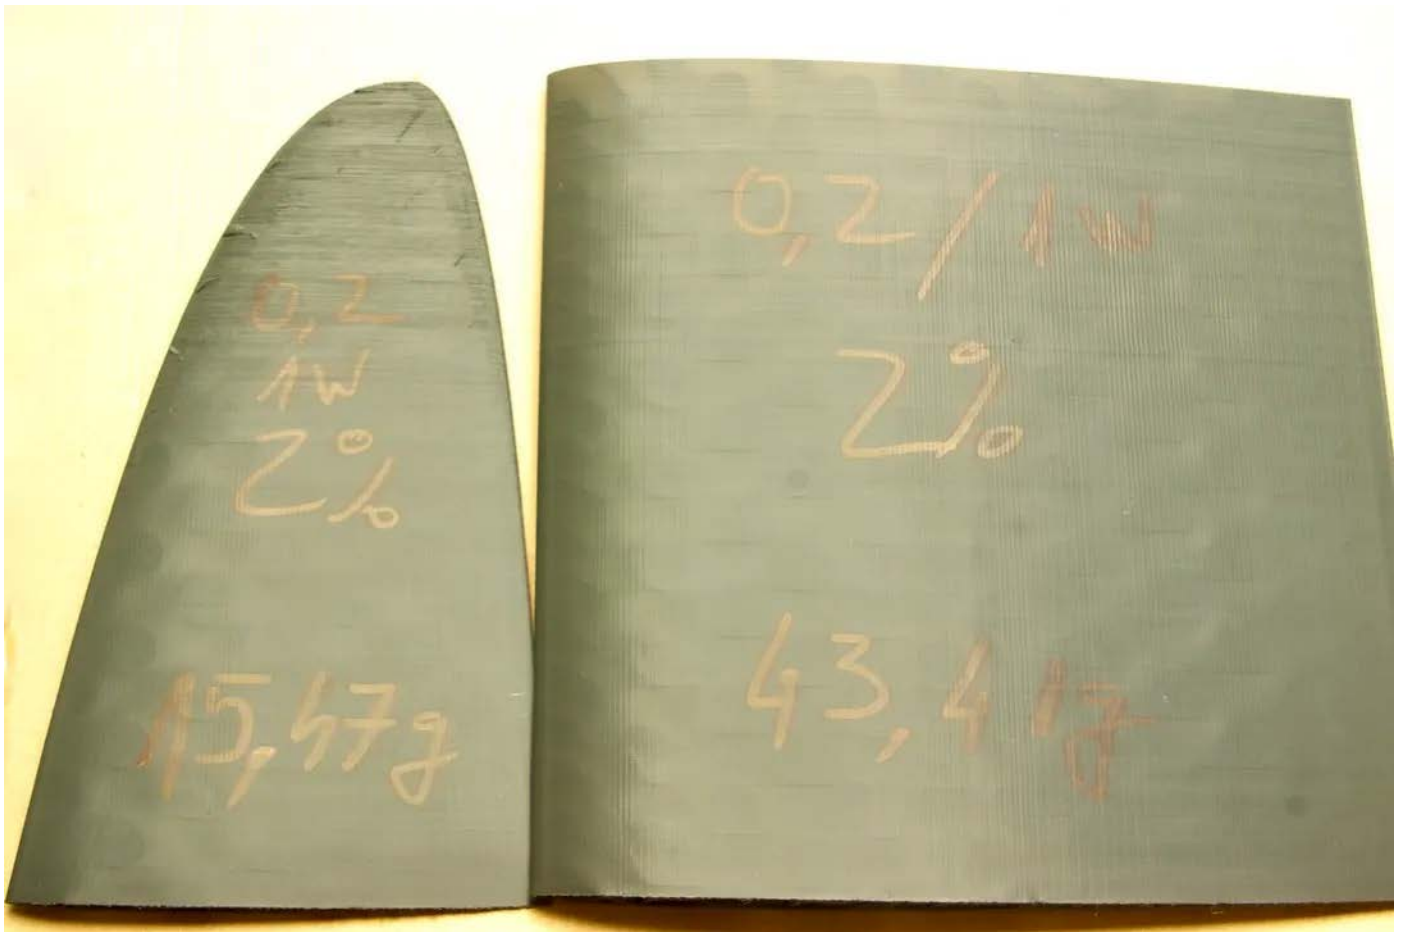 0,2
1W
2%
15,47g
0,2/1W
2%
43,41g